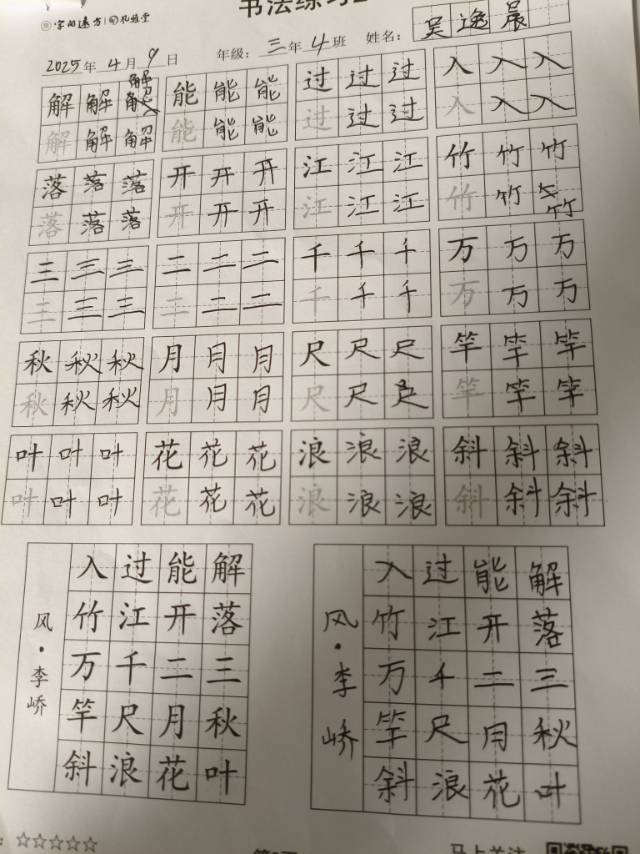 书法练习
2025年 4月 9日 年级：三年4班 姓名：吴逸晨
解 解 解 解 能 能 能 过 过 过 入 入 入
解 解 解 能 能 能 过 过 过 入 入 入
落 落 落 开 开 开 江 江 江 竹 竹 竹
落 落 落 开 开 开 江 江 江 竹 竹 竹
三 三 三 二 二 二 千 千 千 万 万 万
三 三 三 二 二 二 千 千 千 万 万 万
秋 秋 秋 月 月 月 尺 尺 尺 竿 竿 竿
秋 秋 秋 月 月 月 尺 尺 竿 竿 竿
叶 叶 叶 花 花 花 浪 浪 浪 斜 斜 斜
叶 叶 叶 花 花 花 浪 浪 浪 斜 斜 斜
风·李峤
解落三秋叶
能开二月花
过江千尺浪
入竹万竿斜
风·李峤
解落三秋叶
能开二月花
过江千尺浪
入竹万竿斜
☆☆☆☆☆
马上关注